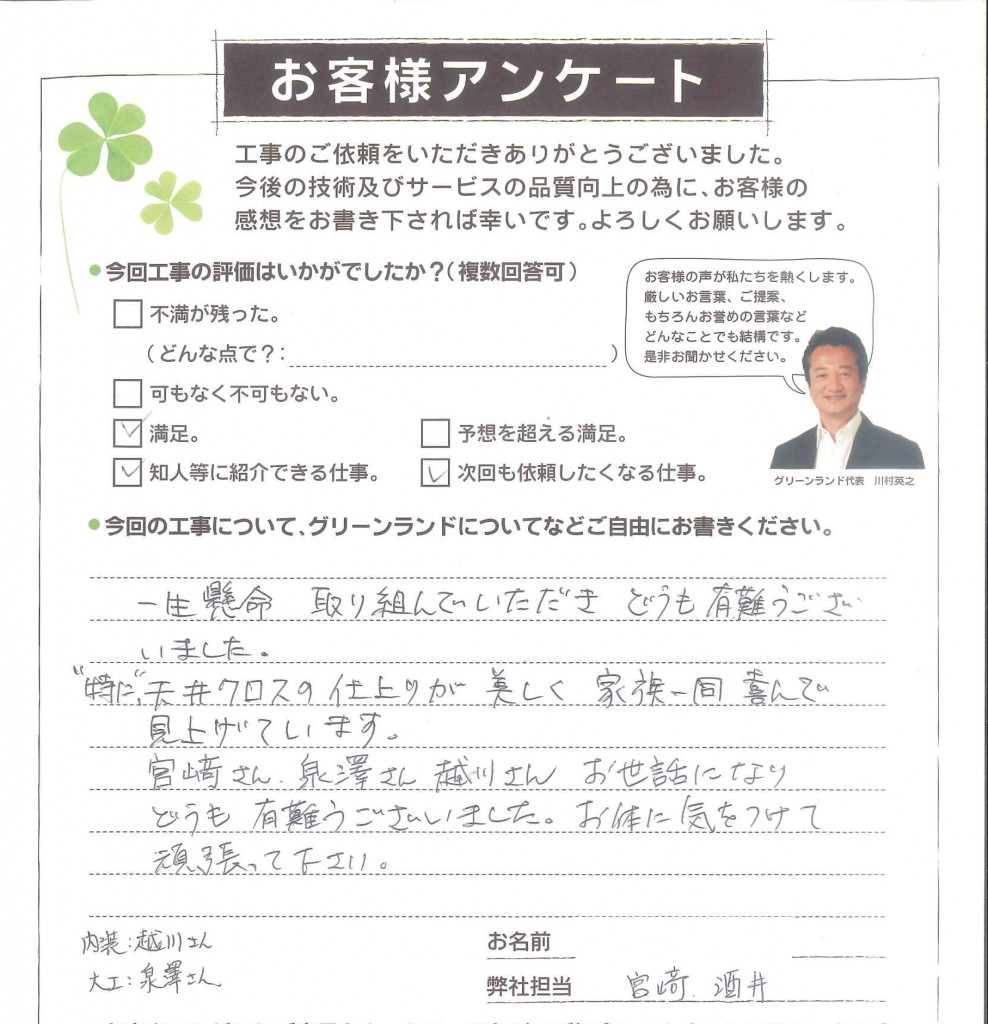 お客様アンケート
工事のご依頼をいただきありがとうございました。
今後の技術及びサービスの品質向上の為に、お客様の
感想をお書き下されば幸いです。よろしくお願いします。
●今回工事の評価はいかがでしたか?(複数回答可)
不満が残った。
(どんな点で?: )
可もなく不可もない。
満足。
予想を超える満足。
知人等に紹介できる仕事。
次回も依頼したくなる仕事。
お客様の声が私たちを熱くします。
厳しいお言葉、ご提案、
もちろんお誉めの言葉など
どんなことでも結構です。
是非お聞かせください。
グリーンランド代表 川村英之
●今回の工事について、グリーンランドについてなどご自由にお書きください。
一生懸命 取り組んでいただき どうも有難うござい
いました。
"特に"、天井クロスの仕上りが 美しく 家族一同 喜んで
見上げています。
宮﨑さん、泉澤さん 越川さん お世話になり
どうも 有難うございいました。お体に気をつけて
頑張って下さい。
内装:越川さん
大工:泉澤さん
お名前
弊社担当 宮﨑、酒井